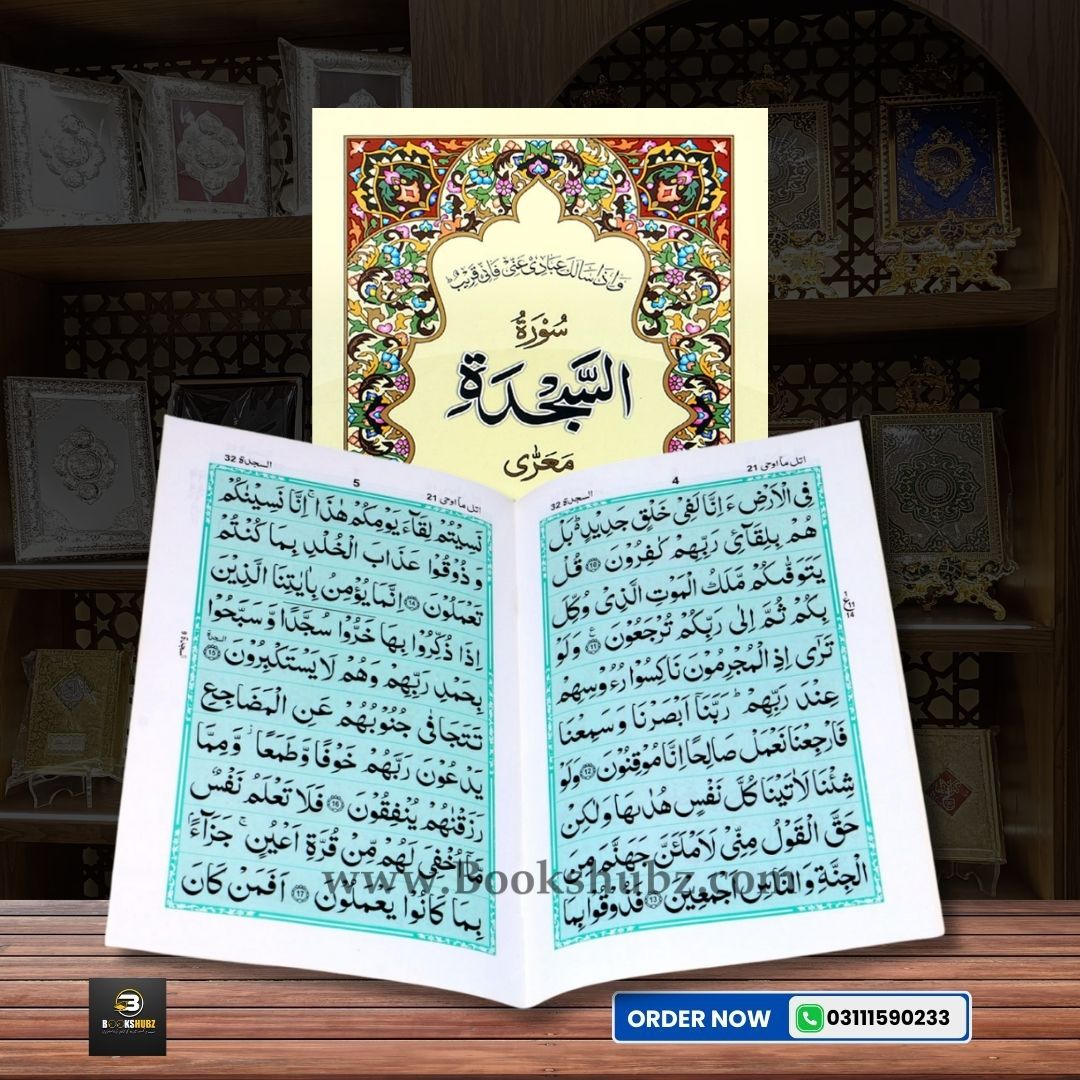 وَاِذَا سَاَلَكَ عِبَادِیْ عَنِّیْ فَاِنِّیْ قَرِیْبٌ ؕ
سُوْرَةُ
السَّجْدَةِ
مَعَرّٰی
اتل ما اوحی 21
4
السجدة 32
فِی الْاَرْضِ ءَاِنَّا لَفِیْ خَلْقٍ جَدِیْدٍ ؕ بَلْ
هُمْ بِلِقَآئِ رَبِّهِمْ كٰفِرُوْنَ ﴿10﴾ قُلْ
یَتَوَفّٰىكُمْ مَّلَكُ الْمَوْتِ الَّذِیْ وُكِّلَ
بِكُمْ ثُمَّ اِلٰی رَبِّكُمْ تُرْجَعُوْنَ ﴿11﴾ وَلَوْ
تَرٰۤی اِذِ الْمُجْرِمُوْنَ نَاكِسُوْا رُءُوْسِهِمْ
عِنْدَ رَبِّهِمْ ؕ رَبَّنَاۤ اَبْصَرْنَا وَسَمِعْنَا
فَارْجِعْنَا نَعْمَلْ صَالِحًا اِنَّا مُوْقِنُوْنَ ﴿12﴾ وَلَوْ
شِئْنَا لَاٰتَیْنَا كُلَّ نَفْسٍ هُدٰىهَا وَلٰكِنْ
حَقَّ الْقَوْلُ مِنِّیْ لَاَمْلَئَنَّ جَهَنَّمَ مِنَ
الْجِنَّةِ وَالنَّاسِ اَجْمَعِیْنَ ﴿13﴾ فَذُوْقُوْا بِمَا
اتل ما اوحی 21
5
السجدة 32
نَسِیْتُمْ لِقَآءَ یَوْمِكُمْ هٰذَا ۚ اِنَّا نَسِیْنٰكُمْ
وَذُوْقُوْا عَذَابَ الْخُلْدِ بِمَا كُنْتُمْ
تَعْمَلُوْنَ ﴿14﴾ اِنَّمَا یُؤْمِنُ بِاٰیٰتِنَا الَّذِیْنَ
اِذَا ذُكِّرُوْا بِهَا خَرُّوْا سُجَّدًا وَّسَبَّحُوْا
بِحَمْدِ رَبِّهِمْ وَهُمْ لَا یَسْتَكْبِرُوْنَ ﴿15﴾ السجدة
تَتَجَافٰی جُنُوْبُهُمْ عَنِ الْمَضَاجِعِ
یَدْعُوْنَ رَبَّهُمْ خَوْفًا وَّطَمَعًا ؗ وَّمِمَّا
رَزَقْنٰهُمْ یُنْفِقُوْنَ ﴿16﴾ فَلَا تَعْلَمُ نَفْسٌ
مَّاۤ اُخْفِیَ لَهُمْ مِّنْ قُرَّةِ اَعْیُنٍ ۚ جَزَآءًۢ
بِمَا كَانُوْا یَعْمَلُوْنَ ﴿17﴾ اَفَمَنْ كَانَ
www.Bookshubz.com
BOOKSHUBZ
ORDER NOW 03111590233